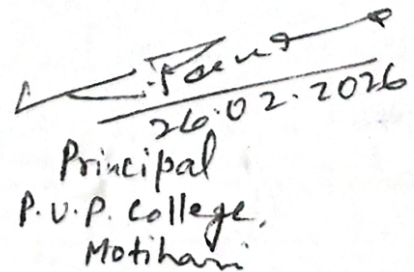 26.02.2026
Principal
P.U.P. College,
Motihari